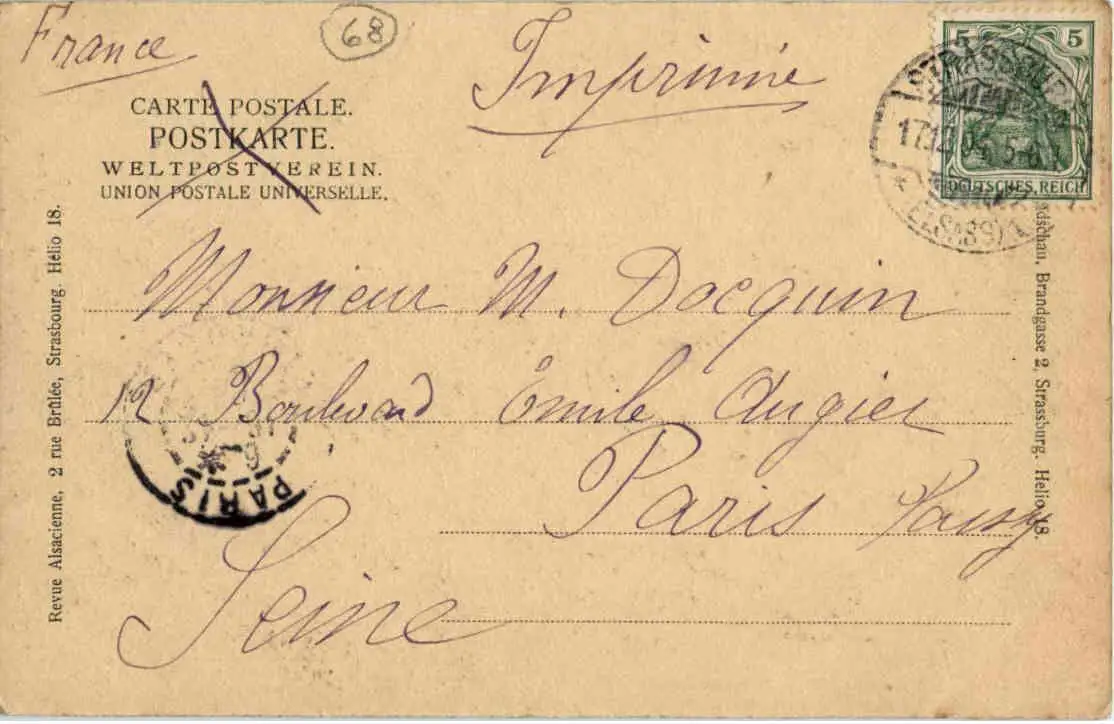 France
68
Imprimé
5 5
DEUTSCHES REICH
STRASSBURG
17.12.04 5-6
* (ELSASS) 1
CARTE POSTALE.
POSTKARTE.
WELTPOSTVEREIN.
UNION POSTALE UNIVERSELLE.
Monsieur M. Docquin
12 Boulevard Émile Augier
Paris Passy
Seine
PARIS
Revue Alsacienne, 2 rue Brûlée, Strasbourg. Hélio 18.
Brandgasse 2, Strassburg. Helio 18.